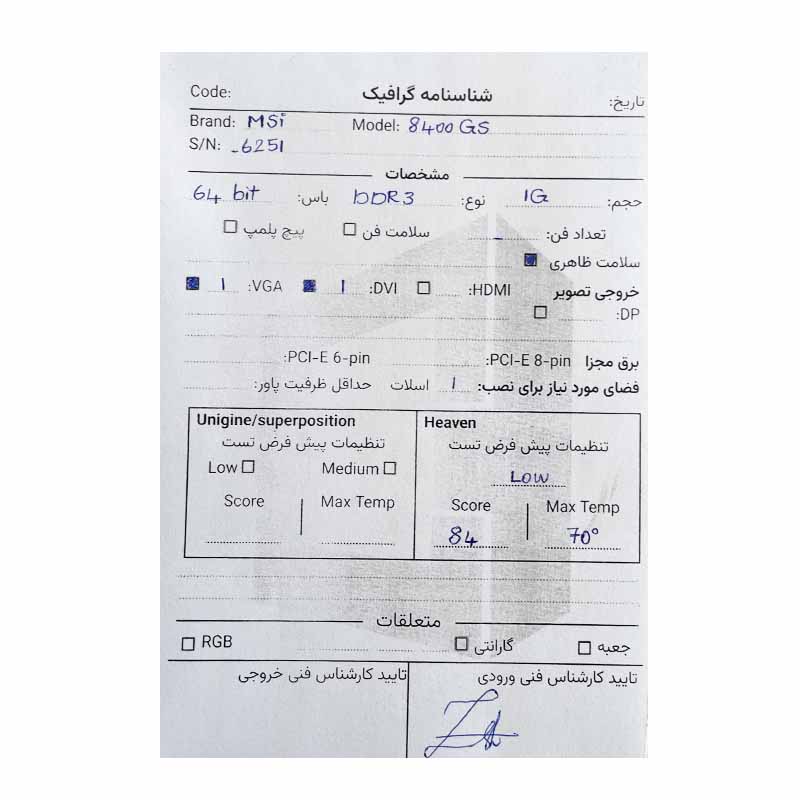 Code: شناسنامه گرافیک تاریخ:
Brand: MSi Model: 8400 GS
S/N: -6251
مشخصات
حجم: 1G نوع: DDR3 باس: 64 bit
تعداد فن: - سلامت فن پیچ پلمپ
سلامت ظاهری
خروجی تصویر HDMI: DVI: 1 VGA: 1
DP:
برق مجزا PCI-E 8-pin: PCI-E 6-pin:
فضای مورد نیاز برای نصب: 1 اسلات حداقل ظرفیت پاور:
Unigine/superposition Heaven
تنظیمات پیش فرض تست تنظیمات پیش فرض تست
Low Medium LOW
Score Max Temp Score Max Temp
84 70°
متعلقات
جعبه گارانتی RGB
تایید کارشناس فنی ورودی تایید کارشناس فنی خروجی